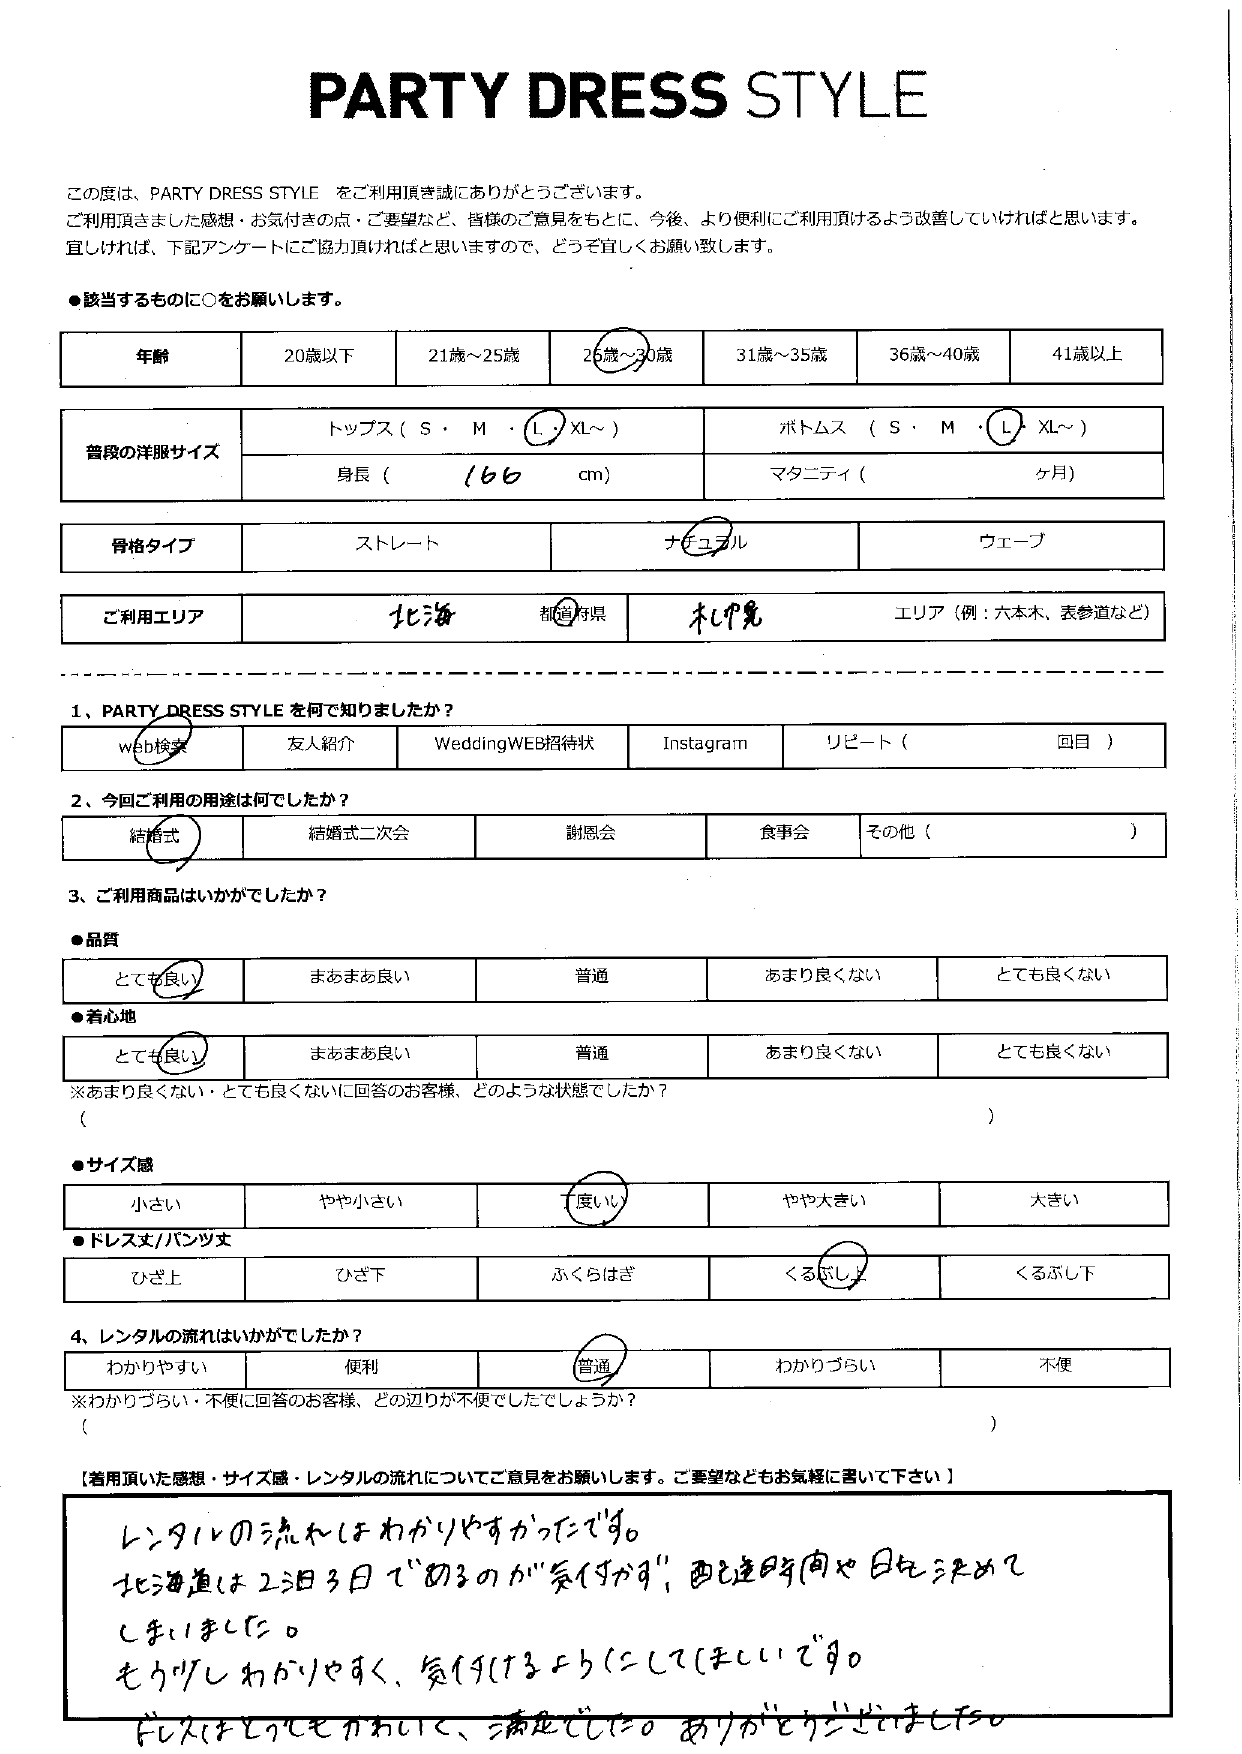 PARTY DRESS STYLE
この度は、PARTY DRESS STYLE をご利用頂き誠にありがとうございます。
ご利用頂きました感想・お気付きの点・ご要望など、皆様のご意見をもとに、今後、より便利にご利用頂けるよう改善していければと思います。
宜しければ、下記アンケートにご協力頂ければと思いますので、どうぞ宜しくお願い致します。
●該当するものに○をお願いします。
年齢 20歳以下 21歳～25歳 26歳～30歳 31歳～35歳 36歳～40歳 41歳以上
普段の洋服サイズ トップス ( S ・ M ・ L ・ XL～ ) ボトムス ( S ・ M ・ L ・ XL～ )
身長 ( 166 cm) マタニティ ( ヶ月)
骨格タイプ ストレート ナチュラル ウェーブ
ご利用エリア 北海 都道府県 札幌 エリア（例：六本木、表参道など）
1、PARTY DRESS STYLE を何で知りましたか？
web検索 友人紹介 WeddingWEB招待状 Instagram リピート ( 回目 )
2、今回ご利用の用途は何でしたか？
結婚式 結婚式二次会 謝恩会 食事会 その他 ( )
3、ご利用商品はいかがでしたか？
●品質
とても良い まあまあ良い 普通 あまり良くない とても良くない
●着心地
とても良い まあまあ良い 普通 あまり良くない とても良くない
※あまり良くない・とても良くないに回答のお客様、どのような状態でしたか？
( )
●サイズ感
小さい やや小さい 丁度いい やや大きい 大きい
●ドレス丈/パンツ丈
ひざ上 ひざ下 ふくらはぎ くるぶし上 くるぶし下
4、レンタルの流れはいかがでしたか？
わかりやすい 便利 普通 わかりづらい 不便
※わかりづらい・不便に回答のお客様、どの辺りが不便でしたでしょうか？
( )
【着用頂いた感想・サイズ感・レンタルの流れについてご意見をお願いします。ご要望などもお気軽に書いて下さい 】
レンタルの流れはわかりやすかったです。
北海道は2泊3日であるのが気付かず、配達時間や日も決めて
しまいました。
もう少しわかりやすく、気付けるようにしてほしいです。
ドレスはとってもかわいく、満足でした。ありがとうございました。